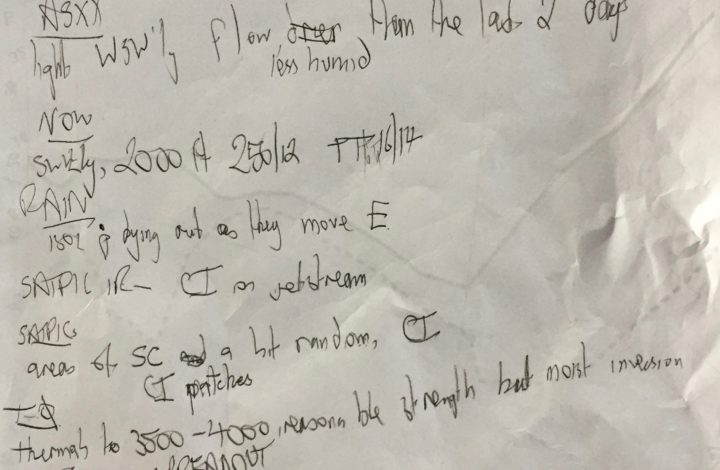 ASXX
light WSW'ly flow than the last 2 days
less humid
NOW
SW'ly, 2000 ft 250/12 16/14
RAIN
ISOL ; dying out as they move E
SATPIC IR - CI on jetstream
SATPIC
areas of SC a bit random, CI
CI patches
TΦ
thermals to 3500-4000, reasonable strength but moist inversion
SPREADOUT